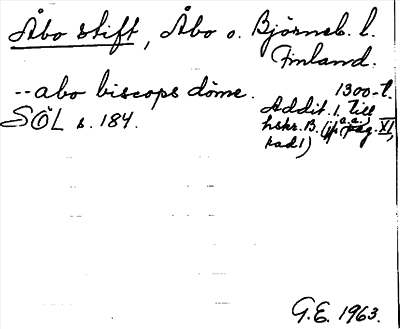 Åbo stift, Åbo o. Björneb. l.
Finland.
--abo biscops döme. 1300-t.
SÖL s. 184. Addit. 1. till
hskr. B. (jfr a.a. pag. XI,
rad 1)
G.E. 1963.